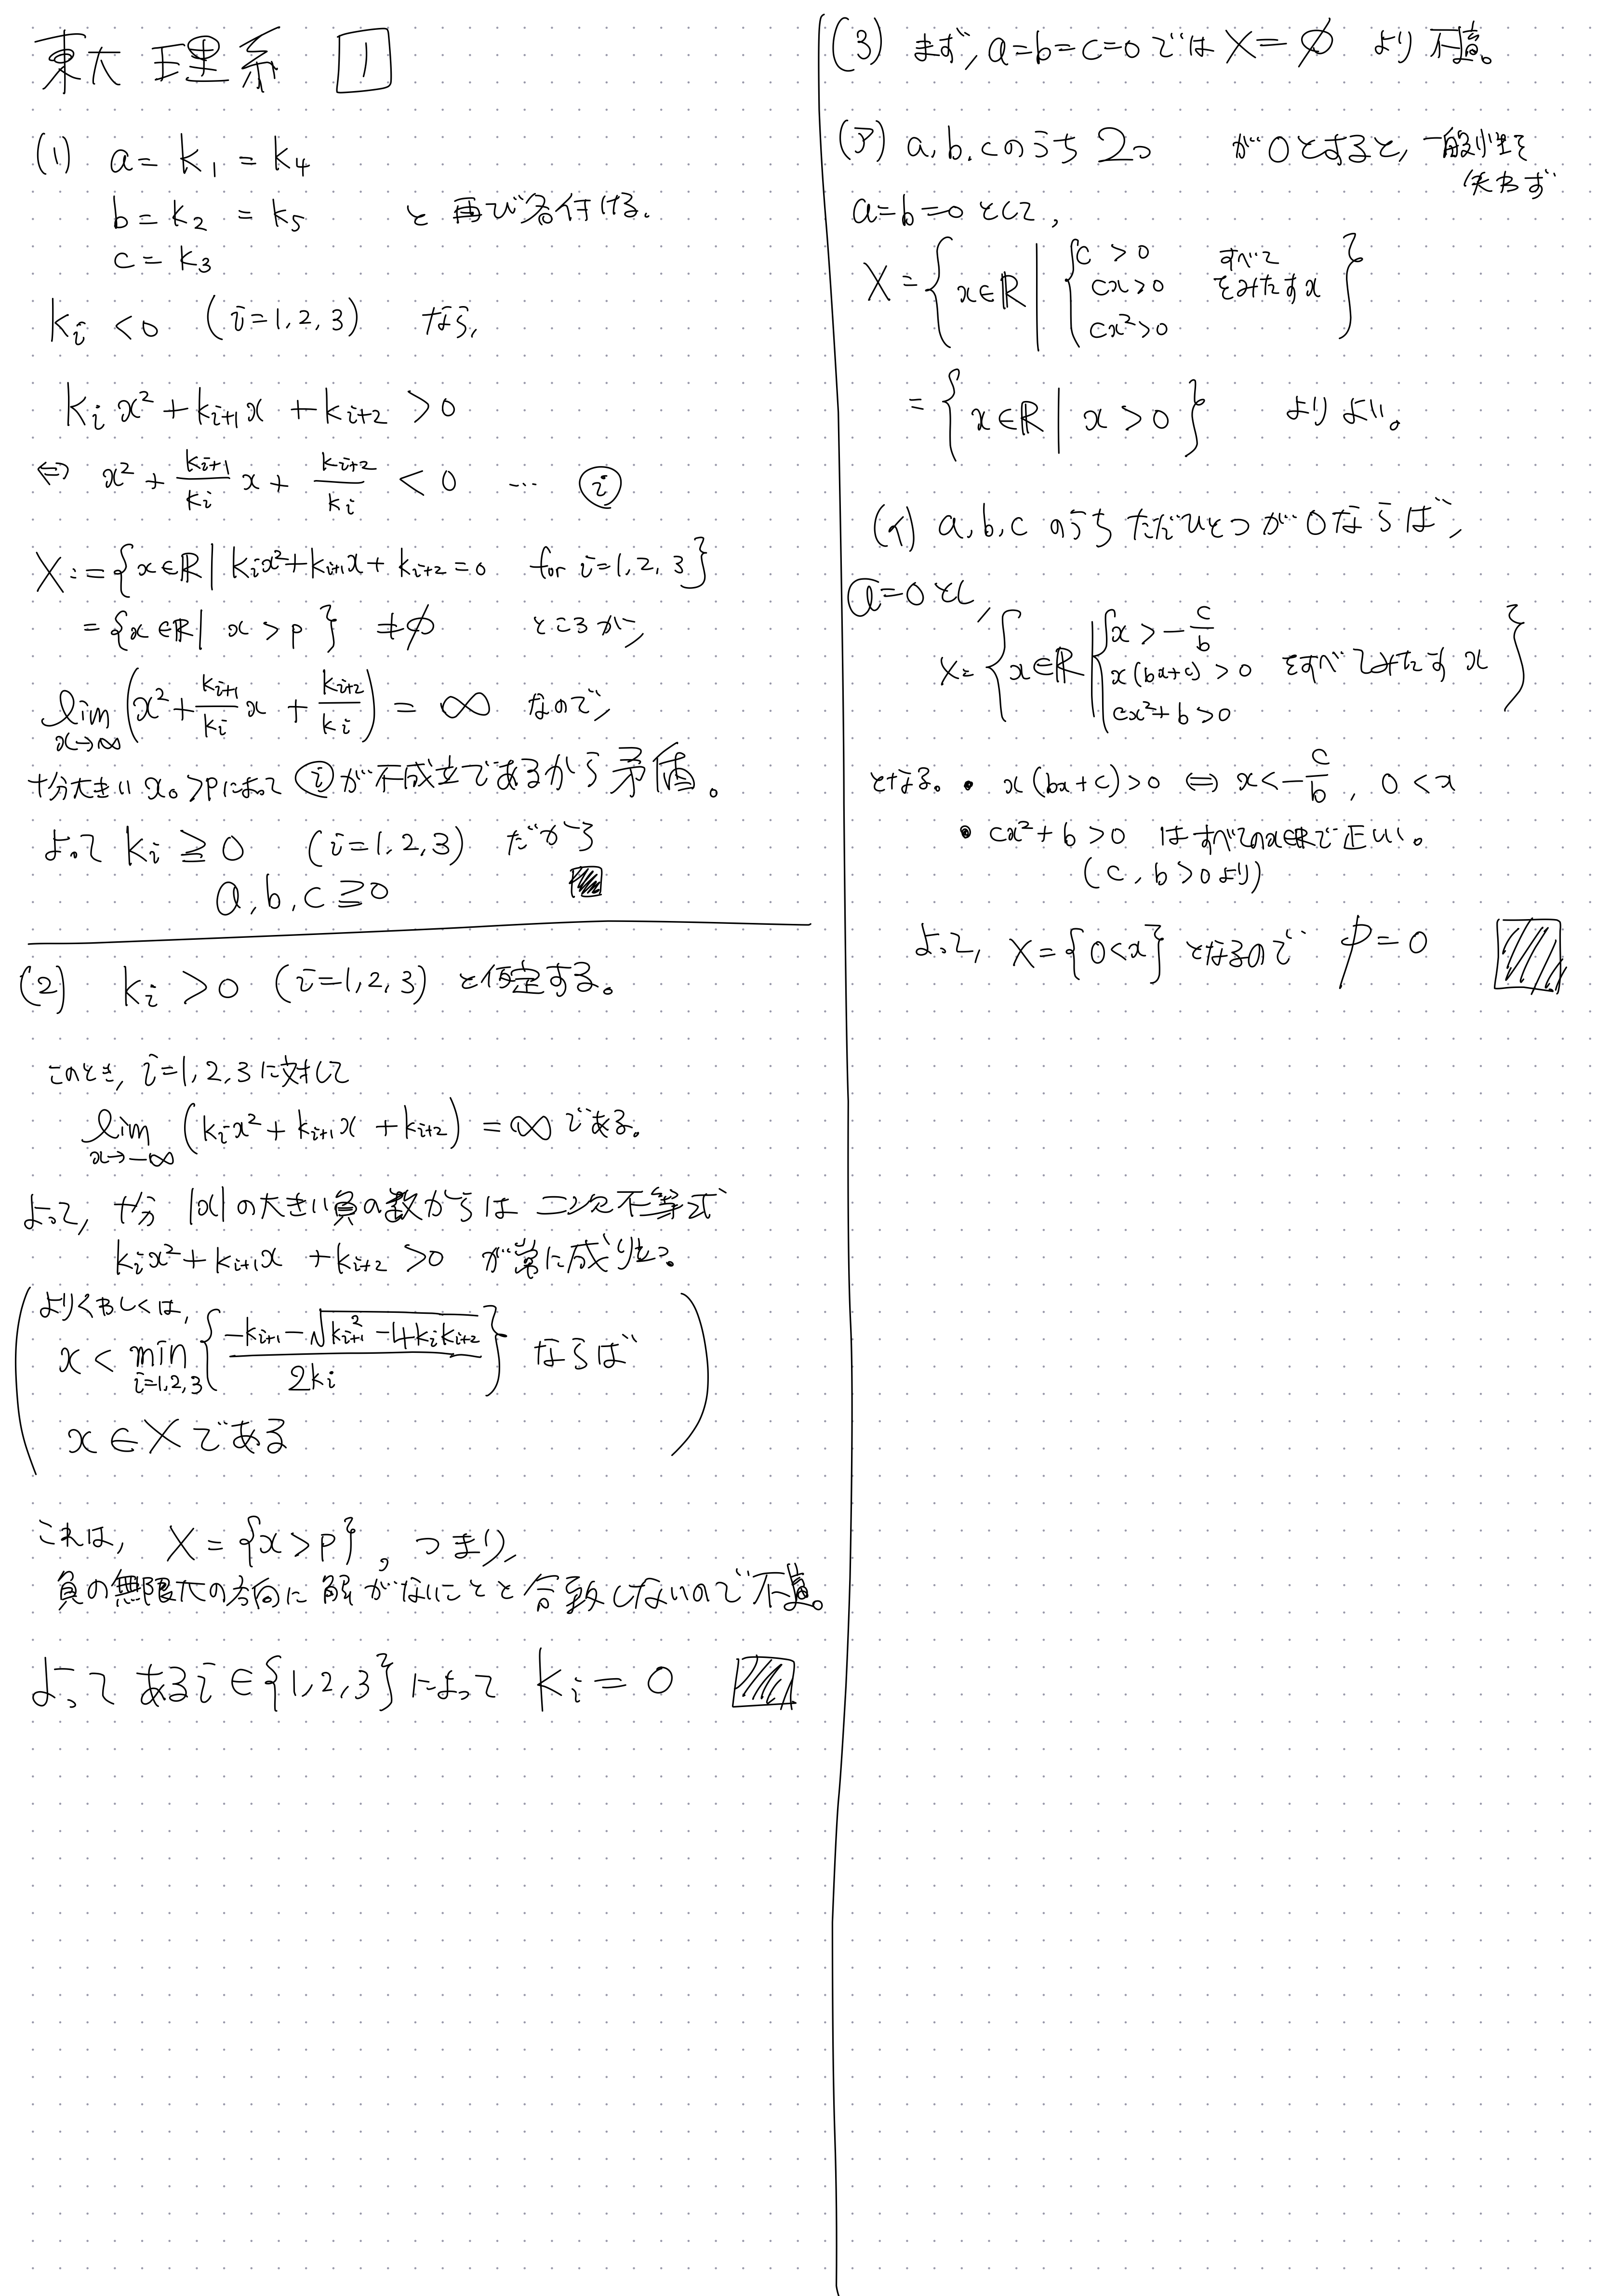 東大 理系 1
(1) a = k₁ = k₄
b = k₂ = k₅ と再び名付ける.
c = k₃
kᵢ < 0 (i=1,2,3) なら,
kᵢx² + kᵢ₊₁x + kᵢ₊₂ > 0
⇔ x² + kᵢ₊₁/kᵢ x + kᵢ₊₂/kᵢ < 0 … ⓘ
X := {x∈ℝ | kᵢx² + kᵢ₊₁x + kᵢ₊₂ = 0 for i=1,2,3}
= {x∈ℝ | x > p} ≠ ∅ ところが,
lim x→∞ (x² + kᵢ₊₁/kᵢ x + kᵢ₊₂/kᵢ) = ∞ なので,
十分大きい x₀ > p によって ⓘ が不成立であるから矛盾。
よって kᵢ ≧ 0 (i=1,2,3) だから
a, b, c ≧ 0
(2) kᵢ > 0 (i=1,2,3) と仮定する。
このとき, i=1,2,3に対して
lim x→-∞ (kᵢx² + kᵢ₊₁x + kᵢ₊₂) = ∞ である。
よって, 十分 |x| の大きい負の数からは 二次不等式
kᵢx² + kᵢ₊₁x + kᵢ₊₂ > 0 が常に成り立つ
(よりくわしくは,
x < min i=1,2,3 { (-kᵢ₊₁ - √(kᵢ₊₁² - 4kᵢkᵢ₊₂)) / 2kᵢ } ならば
x ∈ X である)
これは, X = {x > p}, つまり,
負の無限大の方向に解がないことと合致しないので不適。
よって ある i ∈ {1,2,3} によって kᵢ = 0
(3) まず, a=b=c=0 では X = ∅ より 不適。
(ア) a, b, c のうち 2つ が 0 とすると, 一般性を
失わず
a=b=0 として,
X = { x∈ℝ | { c > 0 cx > 0 cx² > 0 すべてをみたす x }
= { x∈ℝ | x > 0 } よりよい。
(イ) a, b, c のうち ただひとつが 0 ならば,
a=0 とし,
X = { x∈ℝ | { x > -c/b x(bx+c) > 0 cx²+b > 0 をすべてみたす x }
となる。 • x(bx+c) > 0 ⇔ x < -c/b, 0 < x
• cx² + b > 0 はすべてのx∈ℝで正しい。
(c, b > 0 より)
よって, X = {0 < x} となるので p = 0